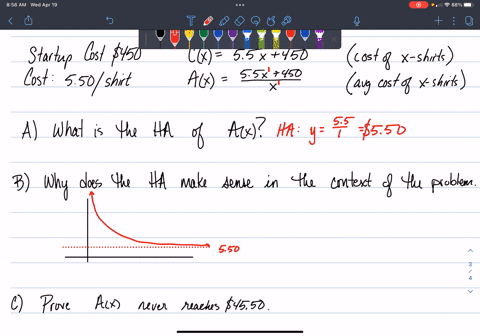 8:56 AM Wed Apr 19
68%
Startup Cost $450 C(x) = 5.5x + 450 (cost of x-shirts)
Cost: 5.50/shirt A(x) = 5.5x¹ + 450 / x¹ (avg cost of x-shirts)
A) What is the HA of A(x)? HA: y = 5.5/1 = $5.50
B) Why does the HA make sense in the context of the problem.
5.50
C) Prove A(x) never reaches $45.50.
3
/
4